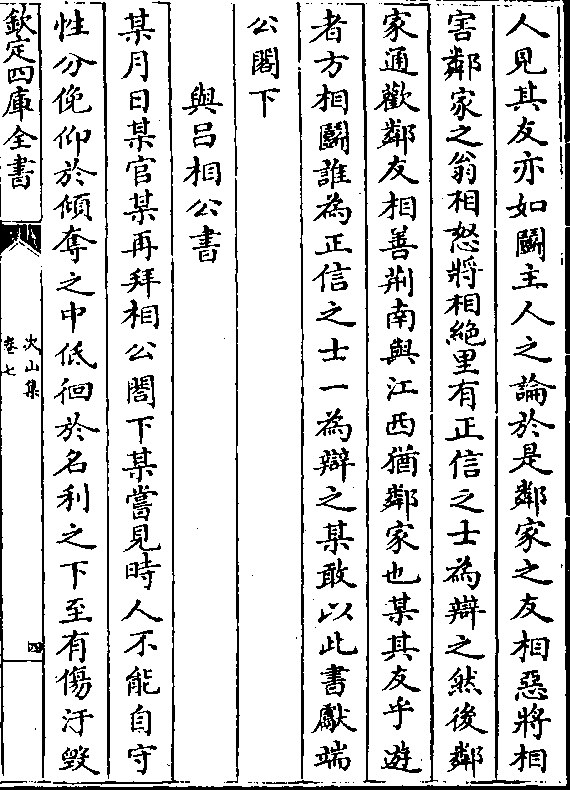 人見其友亦如鬭主人之論於是鄰家之友相惡將相
害鄰家之翁相怒將相絶里有正信之士為辯之然後鄰
家通歡鄰友相善荆南與江西猶鄰家也某其友乎遊
者方相鬭誰為正信之士一為辯之某敢以此書獻端
公閣下
與呂相公書
某月日某官某再拜相公閣下某嘗見時人不能自守
性分俛仰於傾奪之中低徊於名利之下至有傷汙毀
欽定四庫全書
次山集
卷七
四